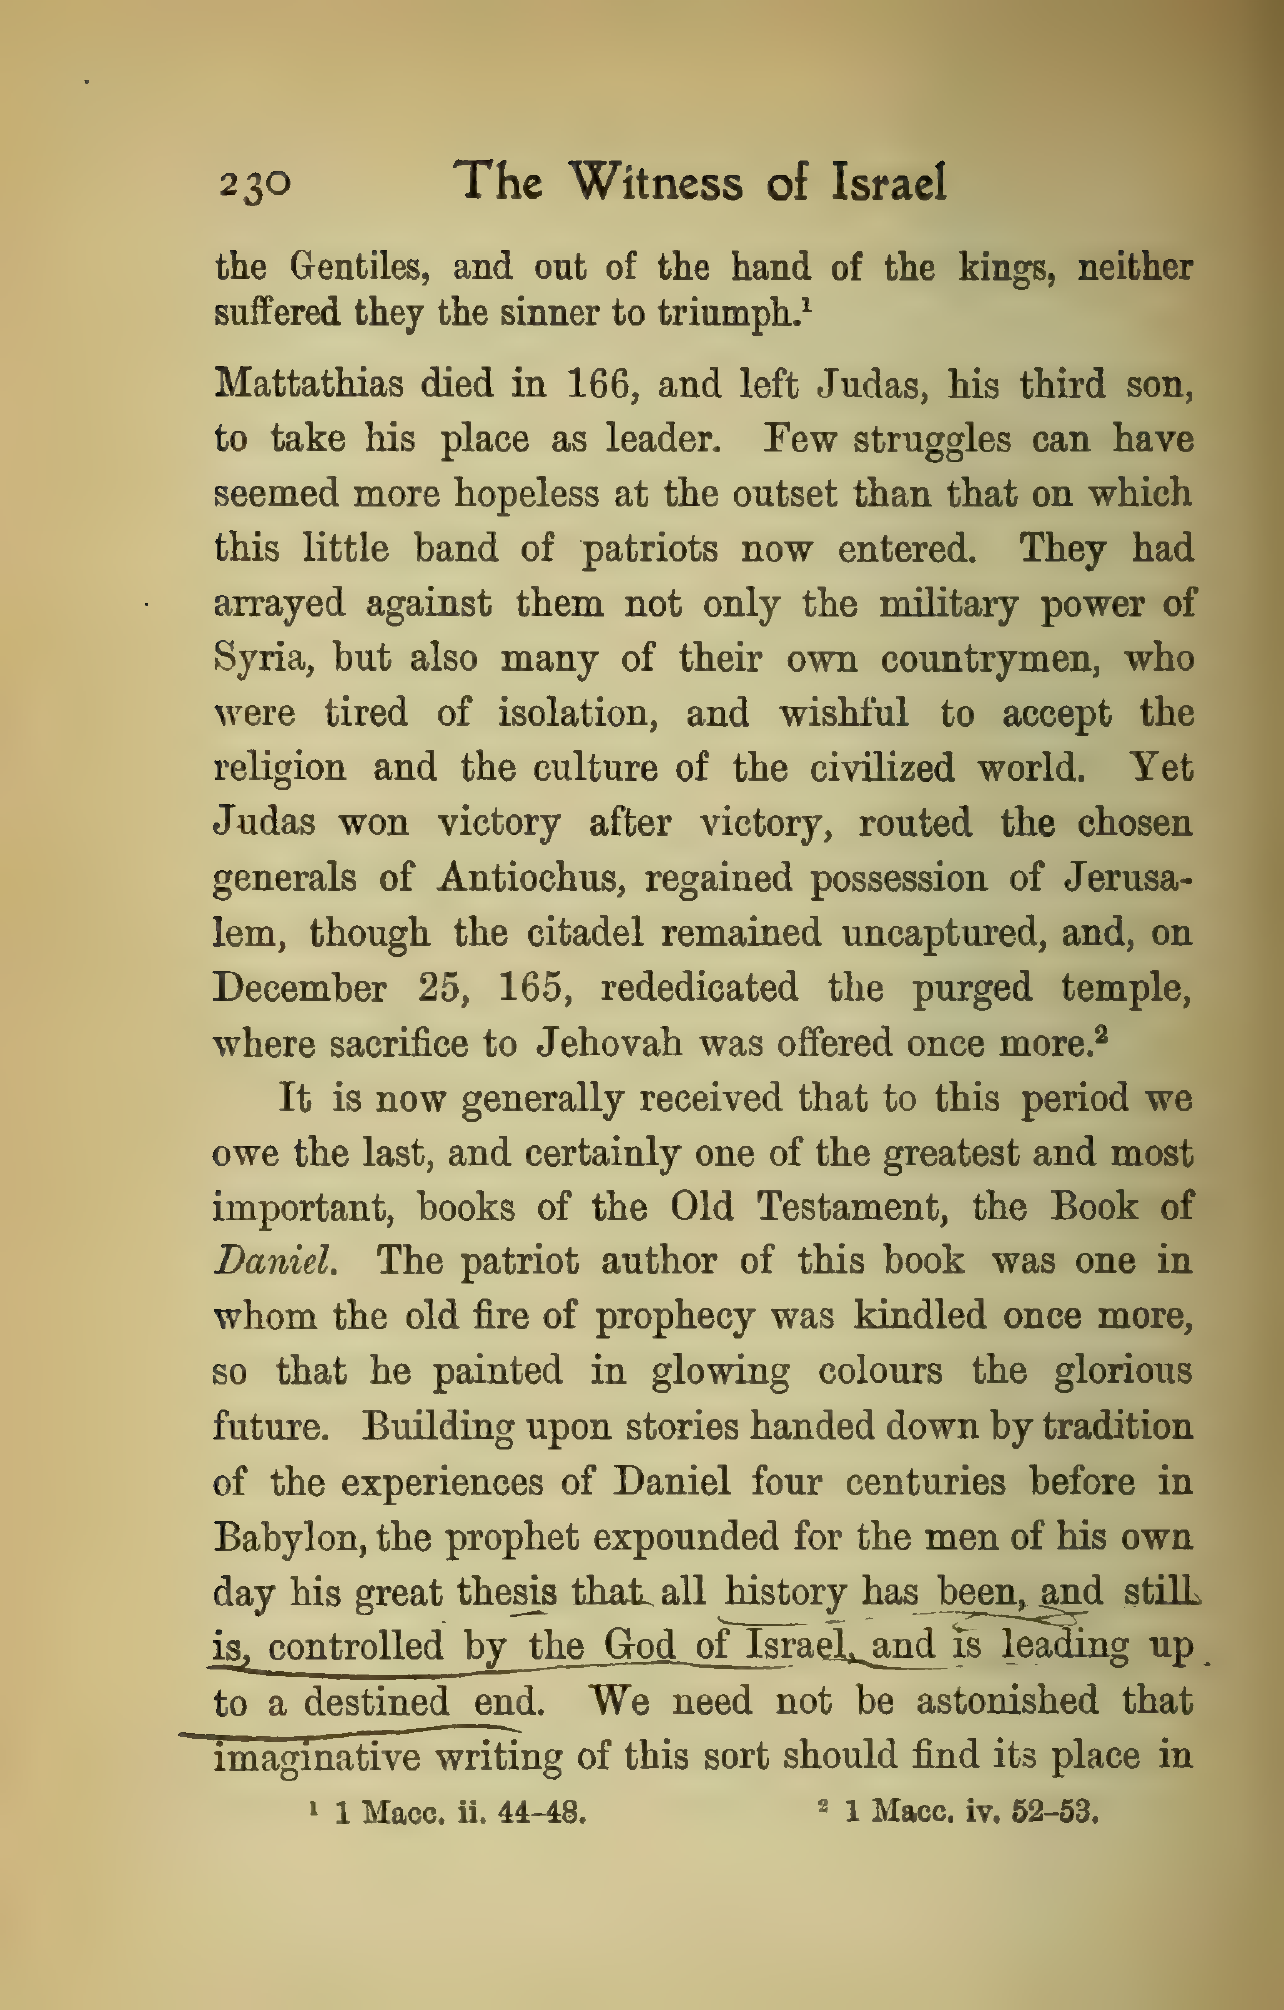 230 The Witness of Israel
the Gentiles, and out of the hand of the kings, neither
suffered they the sinner to triumph.¹
Mattathias died in 166, and left Judas, his third son,
to take his place as leader. Few struggles can have
seemed more hopeless at the outset than that on which
this little band of patriots now entered. They had
arrayed against them not only the military power of
Syria, but also many of their own countrymen, who
were tired of isolation, and wishful to accept the
religion and the culture of the civilized world. Yet
Judas won victory after victory, routed the chosen
generals of Antiochus, regained possession of Jerusa-
lem, though the citadel remained uncaptured, and, on
December 25, 165, rededicated the purged temple,
where sacrifice to Jehovah was offered once more.²
It is now generally received that to this period we
owe the last, and certainly one of the greatest and most
important, books of the Old Testament, the Book of
Daniel. The patriot author of this book was one in
whom the old fire of prophecy was kindled once more,
so that he painted in glowing colours the glorious
future. Building upon stories handed down by tradition
of the experiences of Daniel four centuries before in
Babylon, the prophet expounded for the men of his own
day his great thesis that all history has been, and still
is, controlled by the God of Israel, and is leading up
to a destined end. We need not be astonished that
imaginative writing of this sort should find its place in
¹ 1 Macc. ii. 44–48. ² 1 Macc. iv. 52–53.